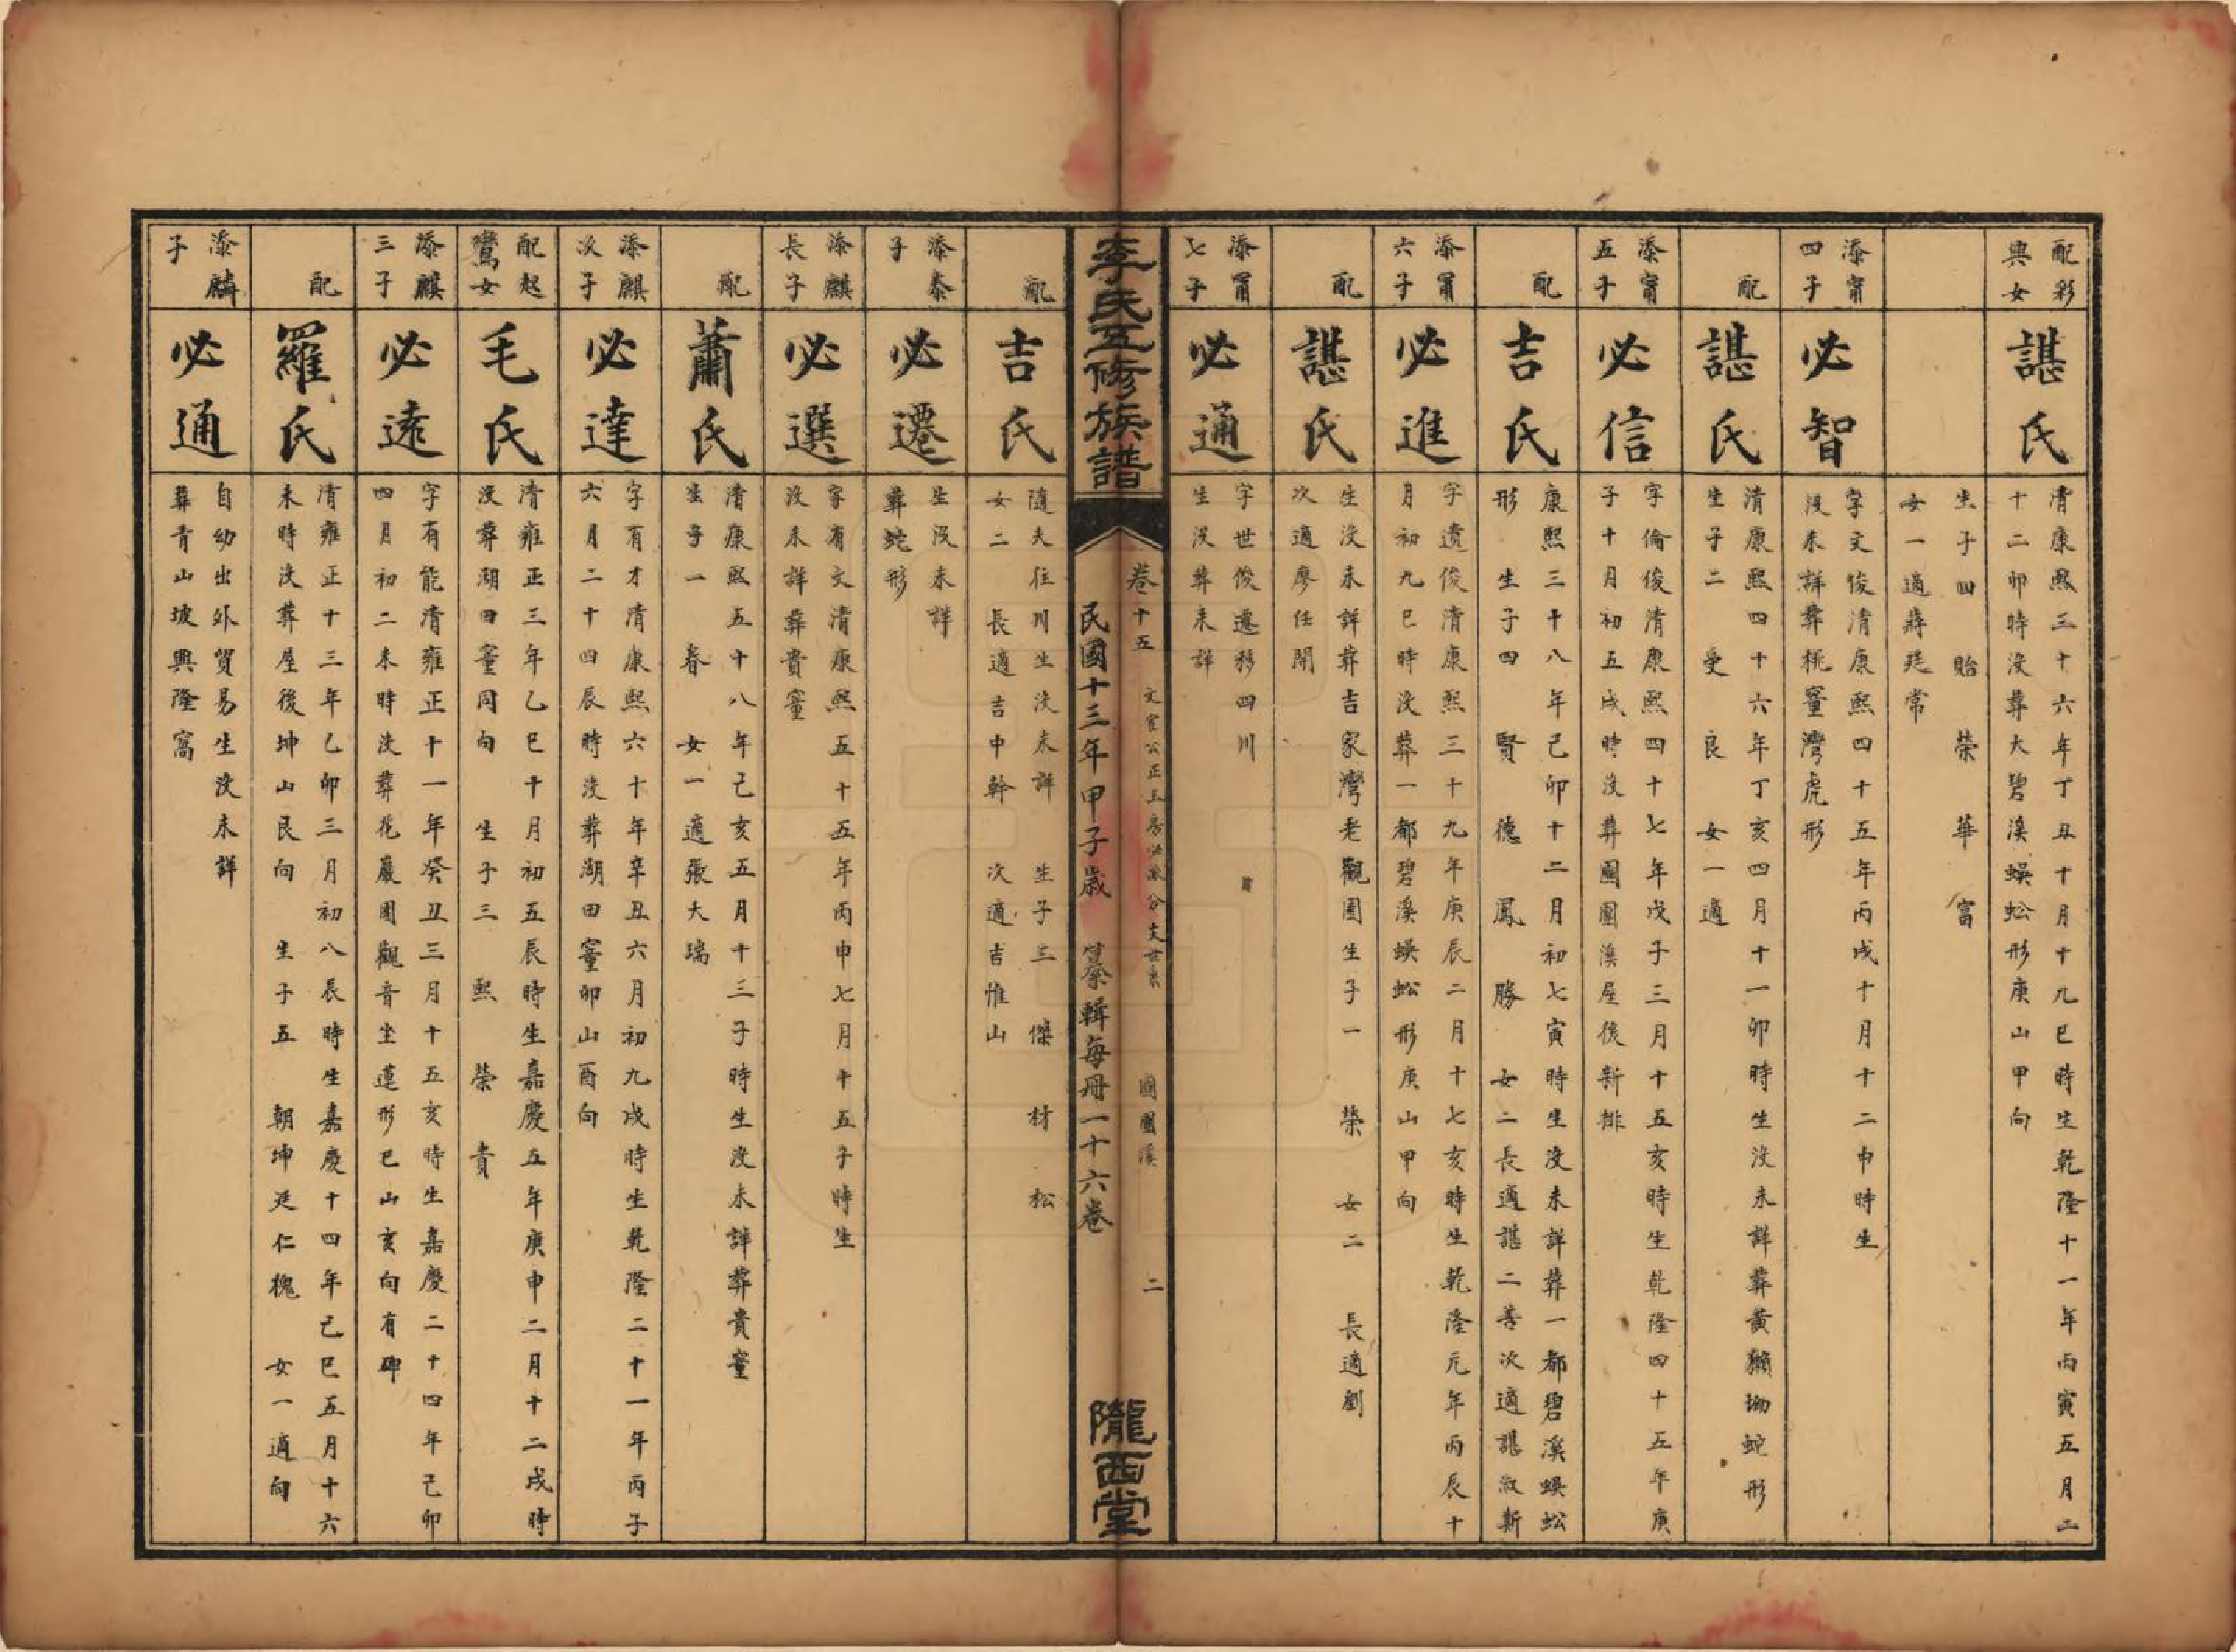 配彩
興女
諶氏
清康熙三十六年丁丑十月十九巳時生乾隆十一年丙寅五月二
十二卯時沒葬大碧溪蜈蚣形庚山甲向
生子四 貽 榮 華 富
女一適蔣廷常
添甯
四子
必智
字文俊清康熙四十五年丙戌十月十二申時生
沒未詳葬桃窰灣虎形
配
諶氏
清康熙四十六年丁亥四月十一卯時生沒未詳葬黃獺坳蛇形
生子二 受 良 女一適
添甯
五子
必信
字倫俊清康熙四十七年戊子三月十五亥時生乾隆四十五年庚
子十月初五戌時沒葬團團溪屋後新排
配
吉氏
康熙三十八年己卯十二月初七寅時生沒未詳葬一都碧溪蜈蚣
形 生子四 賢 德 鳳 勝 女二長適諶二善次適諶淑斯
添甯
六子
必進
字遺俊清康熙三十九年庚辰二月十七亥時生乾隆元年丙辰十
月初九巳時沒葬一都碧溪蜈蚣形庚山甲向
配
諶氏
生沒未詳葬吉家灣老觀園生子一 榮 女二 長適劉
次適廖任開
添甯
七子
必通
字世俊遷移四川
生沒葬未詳
李氏五修族譜
卷十五
文宦公正玉房必派分支世系
團團溪
二
民國十三年甲子歲 纂輯每冊一十六卷
隴西堂
配
吉氏
隨夫往川生沒未詳 生子三 傑 材 松
女二 長適吉中幹 次適吉惟山
添泰
子
必遷
生沒未詳
葬蛇形
添麒
長子
必選
字有文清康熙五十五年丙申七月十五子時生
沒未詳葬貴窰
配
蕭氏
清康熙五十八年己亥五月十三子時生沒未詳葬貴窰
生子一 春 女一適張大瑞
添麒
次子
必達
字有才清康熙六十年辛丑六月初九戌時生乾隆二十一年丙子
六月二十四辰時沒葬湖田窰卯山酉向
配起
鸞女
毛氏
清雍正三年乙巳十月初五辰時生嘉慶五年庚申二月十二戌時
沒葬湖田窰同向 生子三 熙 榮 貴
添麒
三子
必遠
字有能清雍正十一年癸丑三月十五亥時生嘉慶二十四年己卯
四月初二未時沒葬花巖園觀音坐蓮形巳山亥向有碑
配
羅氏
清雍正十三年乙卯三月初八辰時生嘉慶十四年己巳五月十六
未時沒葬屋後坤山艮向 生子五 朝坤廷仁槐 女一適向
添麟
子
必通
自幼出外貿易生沒未詳
葬青山坡興隆窩